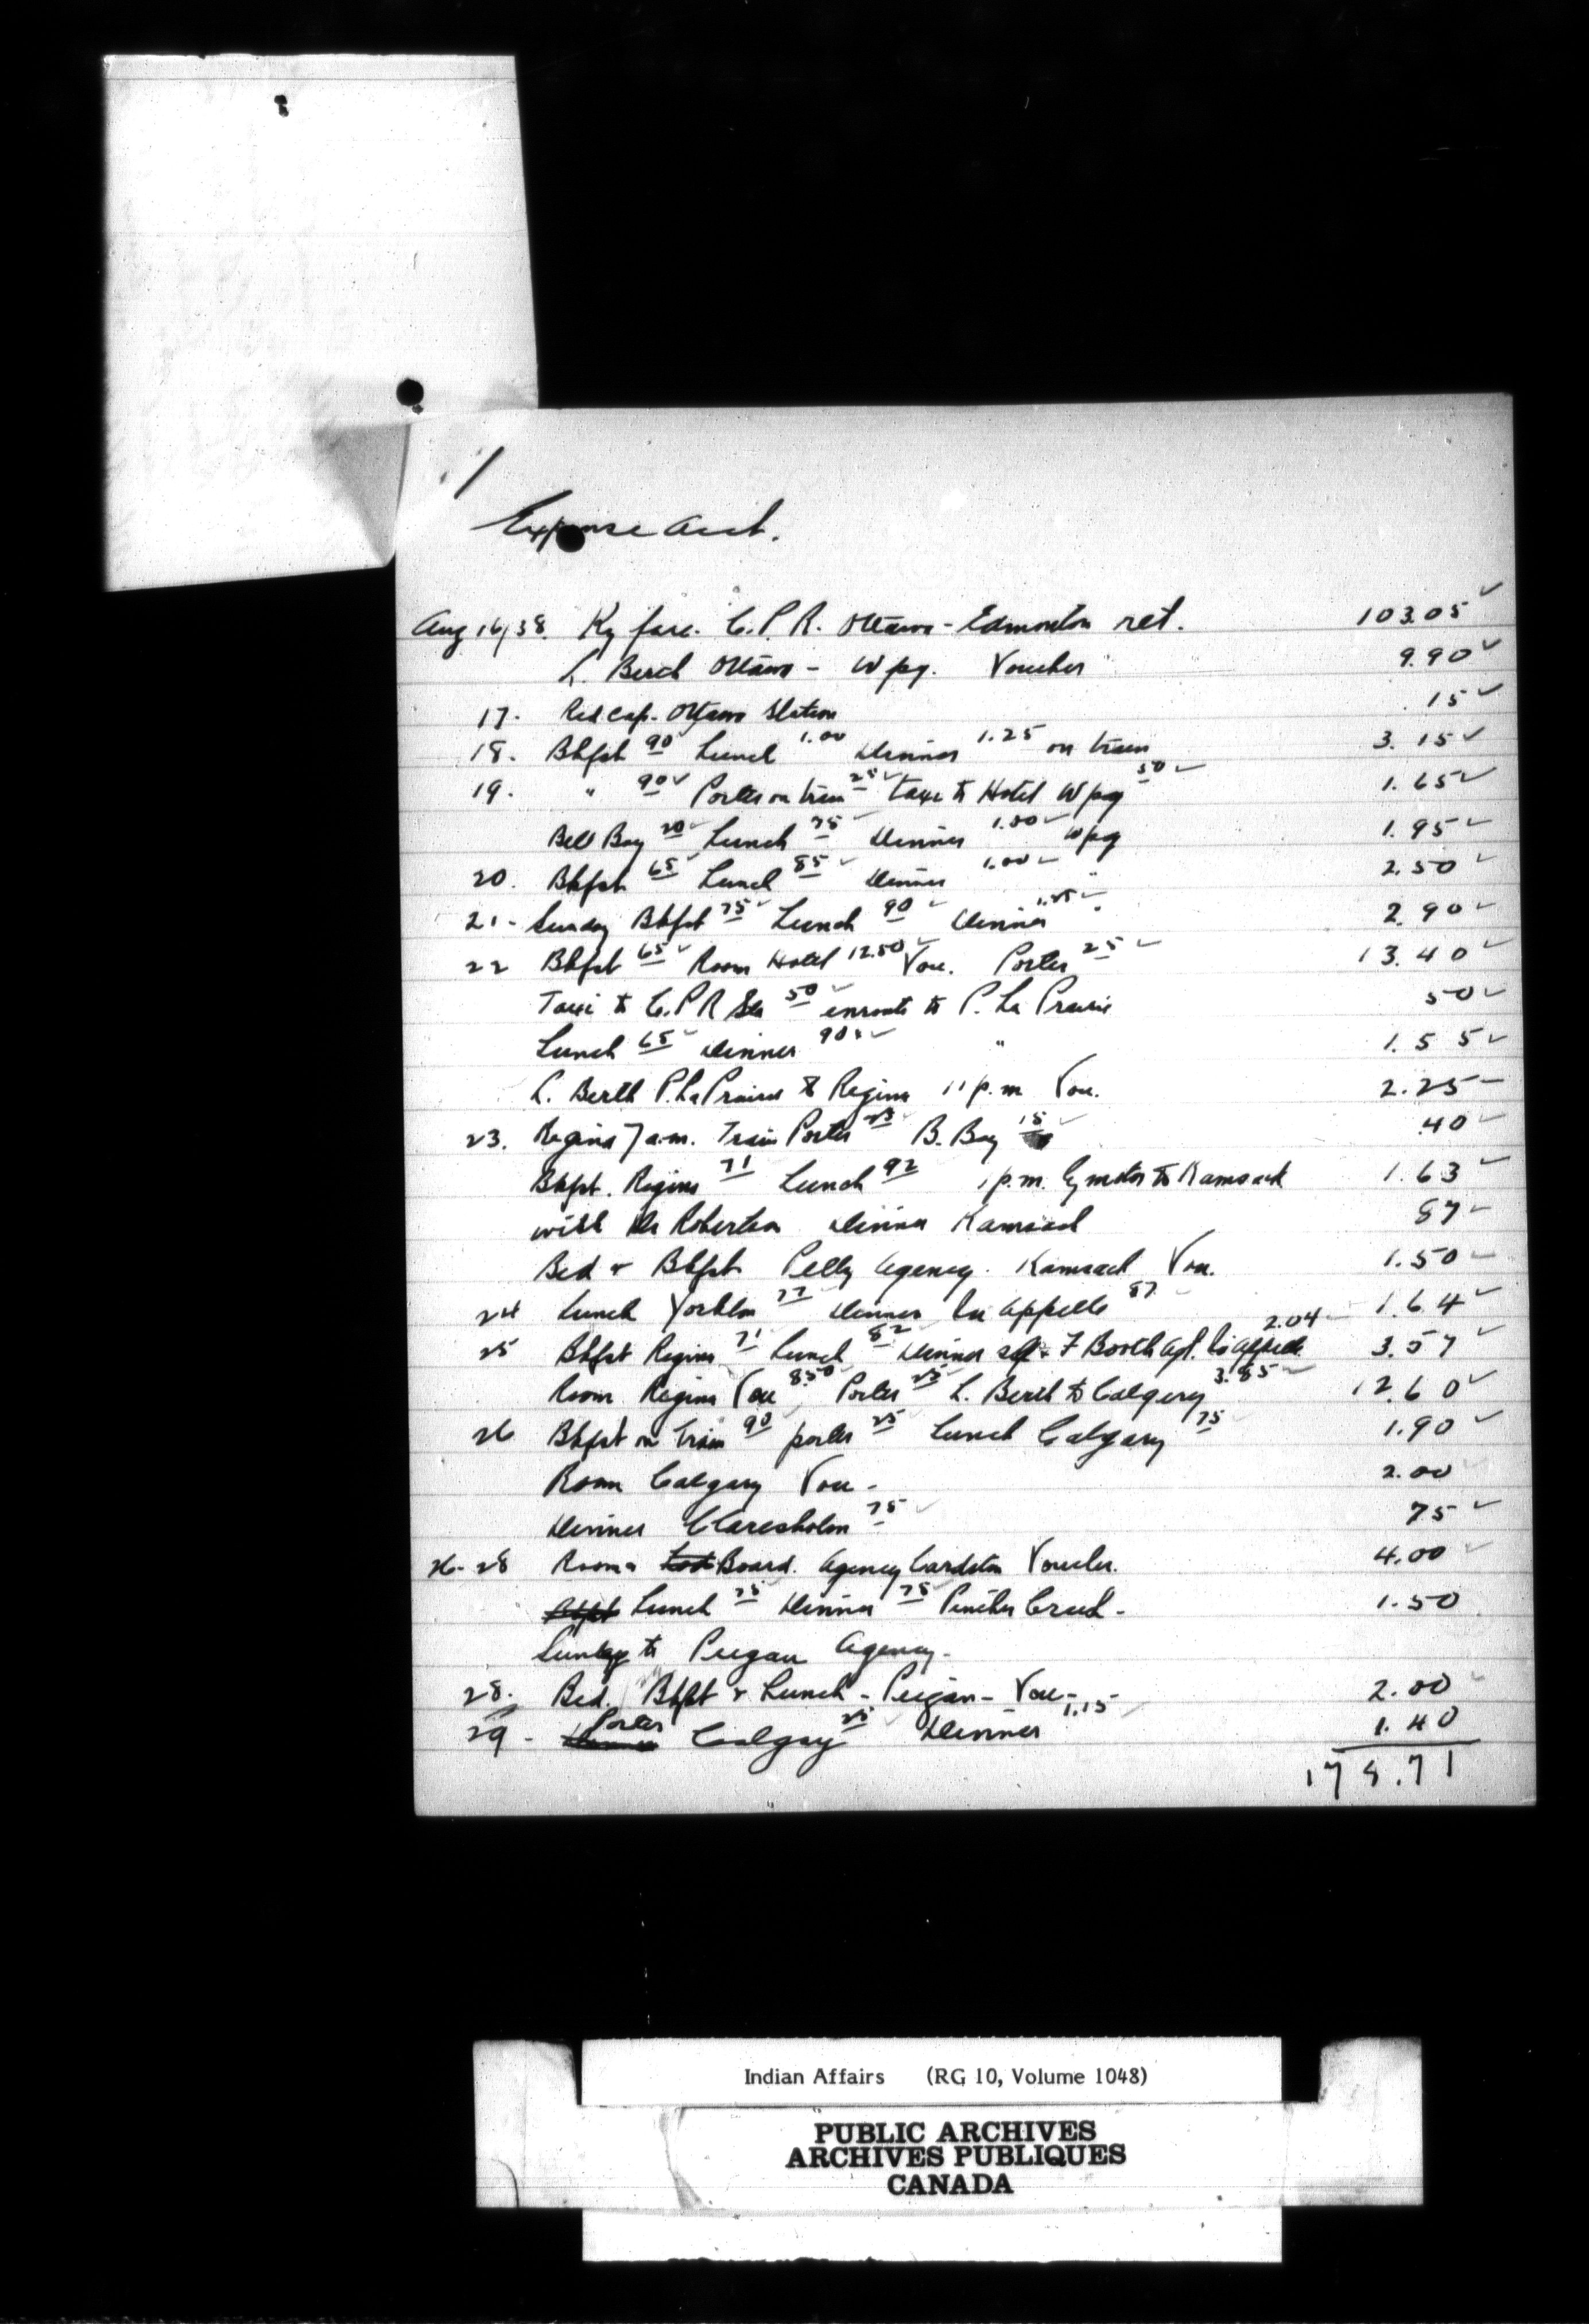 1
Expense acct.
Aug 16/38. Ry fare. C.P.R. Ottawa - Edmonton ret. 103.05 ✓
L. Berth Ottawa - Wpg. Voucher 9.90 ✓
17. Red Cap - Ottawa Station .15 ✓
18. Bkfst 90 Lunch 1.00 Dinner 1.25 on train 3.15 ✓
19. " 90 ✓ Porter on train 25 ✓ taxi to Hotel Wpg 50 ✓ 1.65 ✓
Bell Boy 20 ✓ Lunch 75 ✓ Dinner 1.00 ✓ Wpg 1.95 ✓
20. Bkfst 65 ✓ Lunch 85 ✓ Dinner 1.00 ✓ " 2.50 ✓
21 - Sunday Bkfst 75 ✓ Lunch 90 ✓ Dinner 1.25 ✓ " 2.90 ✓
22 Bkfst 65 ✓ Room Hotel 12.50 ✓ Vou. Porter 25 ✓ 13.40 ✓
Taxi to C.P.R Sta 50 ✓ enroute to P. La Prairie 50 ✓
Lunch 65 ✓ Dinner 90 ✓ " 1.55 ✓
L. Berth P. La Prairie to Regina 11 p.m Vou. 2.25
23. Regina 7 a.m. Train Porter 25 ✓ B. Boy 15 ✓ .40 ✓
Bkfst. Regina 71 Lunch 92 1 p.m. by motor to Kamsack 1.63 ✓
with Dr Robertson Dinner Kamsack 87 ✓
Bed & Bkfst Pelly Agency. Kamsack Vou. 1.50 ✓
24 Lunch Yorkton 77 Dinner Qu Appelle 87 ✓ 1.64 ✓
25 Bkfst Regina 71 ✓ Lunch 82 ✓ Dinner self & F Booth Agt. Qu'Appelle 2.04 ✓ 3.57 ✓
Room Regina Vou 8.50 ✓ Porter 25 ✓ L. Berth to Calgary 3.85 ✓ 12.60 ✓
26 Bkfst on train 90 ✓ porter 25 ✓ Lunch Calgary 75 ✓ 1.90 ✓
Room Calgary Vou - 2.00 ✓
Dinner Claresholm 75 ✓ 75 ✓
26-28 Room & Board. Agency Cardston Voucher. 4.00 ✓
Bkfst Lunch 75 ✓ Dinner 75 ✓ Pincher Creek - 1.50
Sunday to Peigan Agency -
28. Bed. Bkfst & Lunch - Peigan - Vou - 2.00 ✓
29 - Porter Calgary 25 ✓ Dinner 1.15 ✓ 1.40
178.71
Indian Affairs (RG 10, Volume 1048)
PUBLIC ARCHIVES
ARCHIVES PUBLIQUES
CANADA